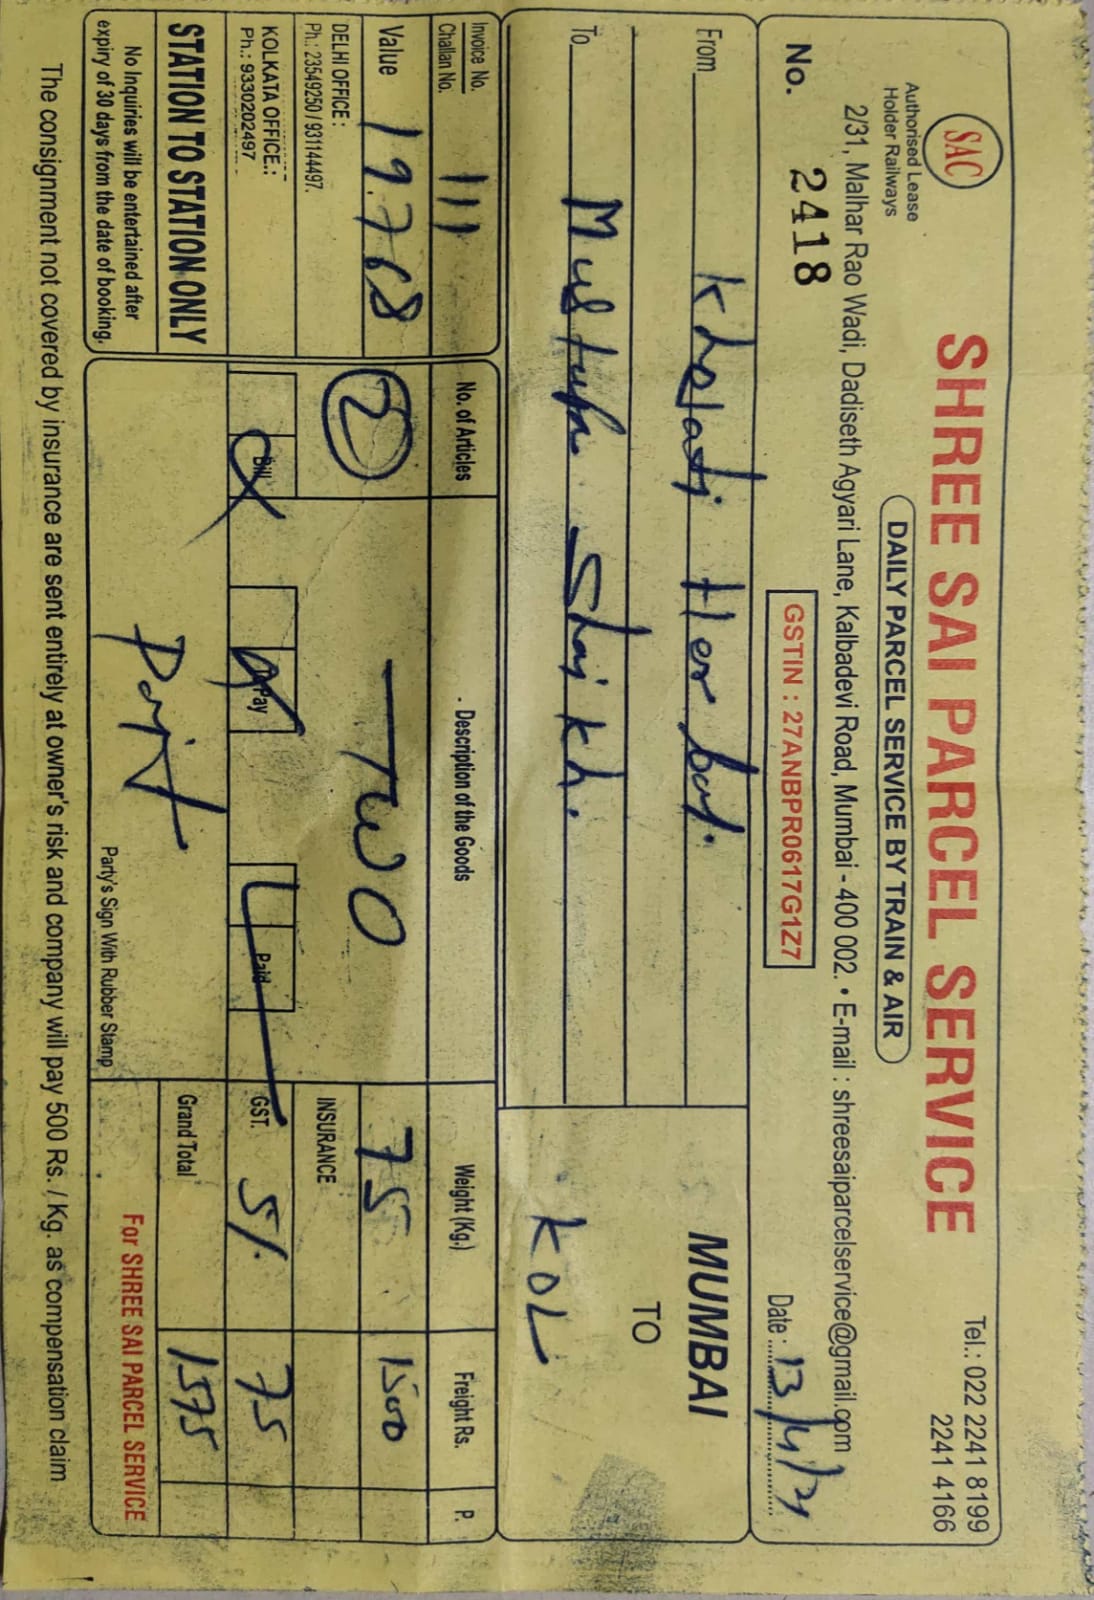 SAC
SHREE SAI PARCEL SERVICE
Tel.: 022 2241 8199
2241 4166
Authorised Lease
Holder Railways
DAILY PARCEL SERVICE BY TRAIN & AIR
2/31, Malhar Rao Wadi, Dadiseth Agyari Lane, Kalbadevi Road, Mumbai - 400 002. • E-mail : shreesaiparcelservice@gmail.com
No. 2418
GSTIN : 27ANBPR0617G1Z7
Date : 13/4/21
From Kholatj Herbal.
MUMBAI
TO
To Mustufa Shaikh.
KOL
Invoice No.
Challan No. 111
No. of Articles
Description of the Goods
Weight (Kg.)
Freight Rs.
P.
Value 19768
2
TWO
75
1500
DELHI OFFICE :
Ph.: 23549250 / 931144497.
INSURANCE
KOLKATA OFFICE.:
Ph.: 9330202497
Bill
Pay
Paid
GST. 5%
75
STATION TO STATION ONLY
Grand Total
1575
No Inquiries will be entertained after
expiry of 30 days from the date of booking.
Party's Sign With Rubber Stamp
For SHREE SAI PARCEL SERVICE
The consignment not covered by insurance are sent entirely at owner's risk and company will pay 500 Rs. / Kg. as compensation claim